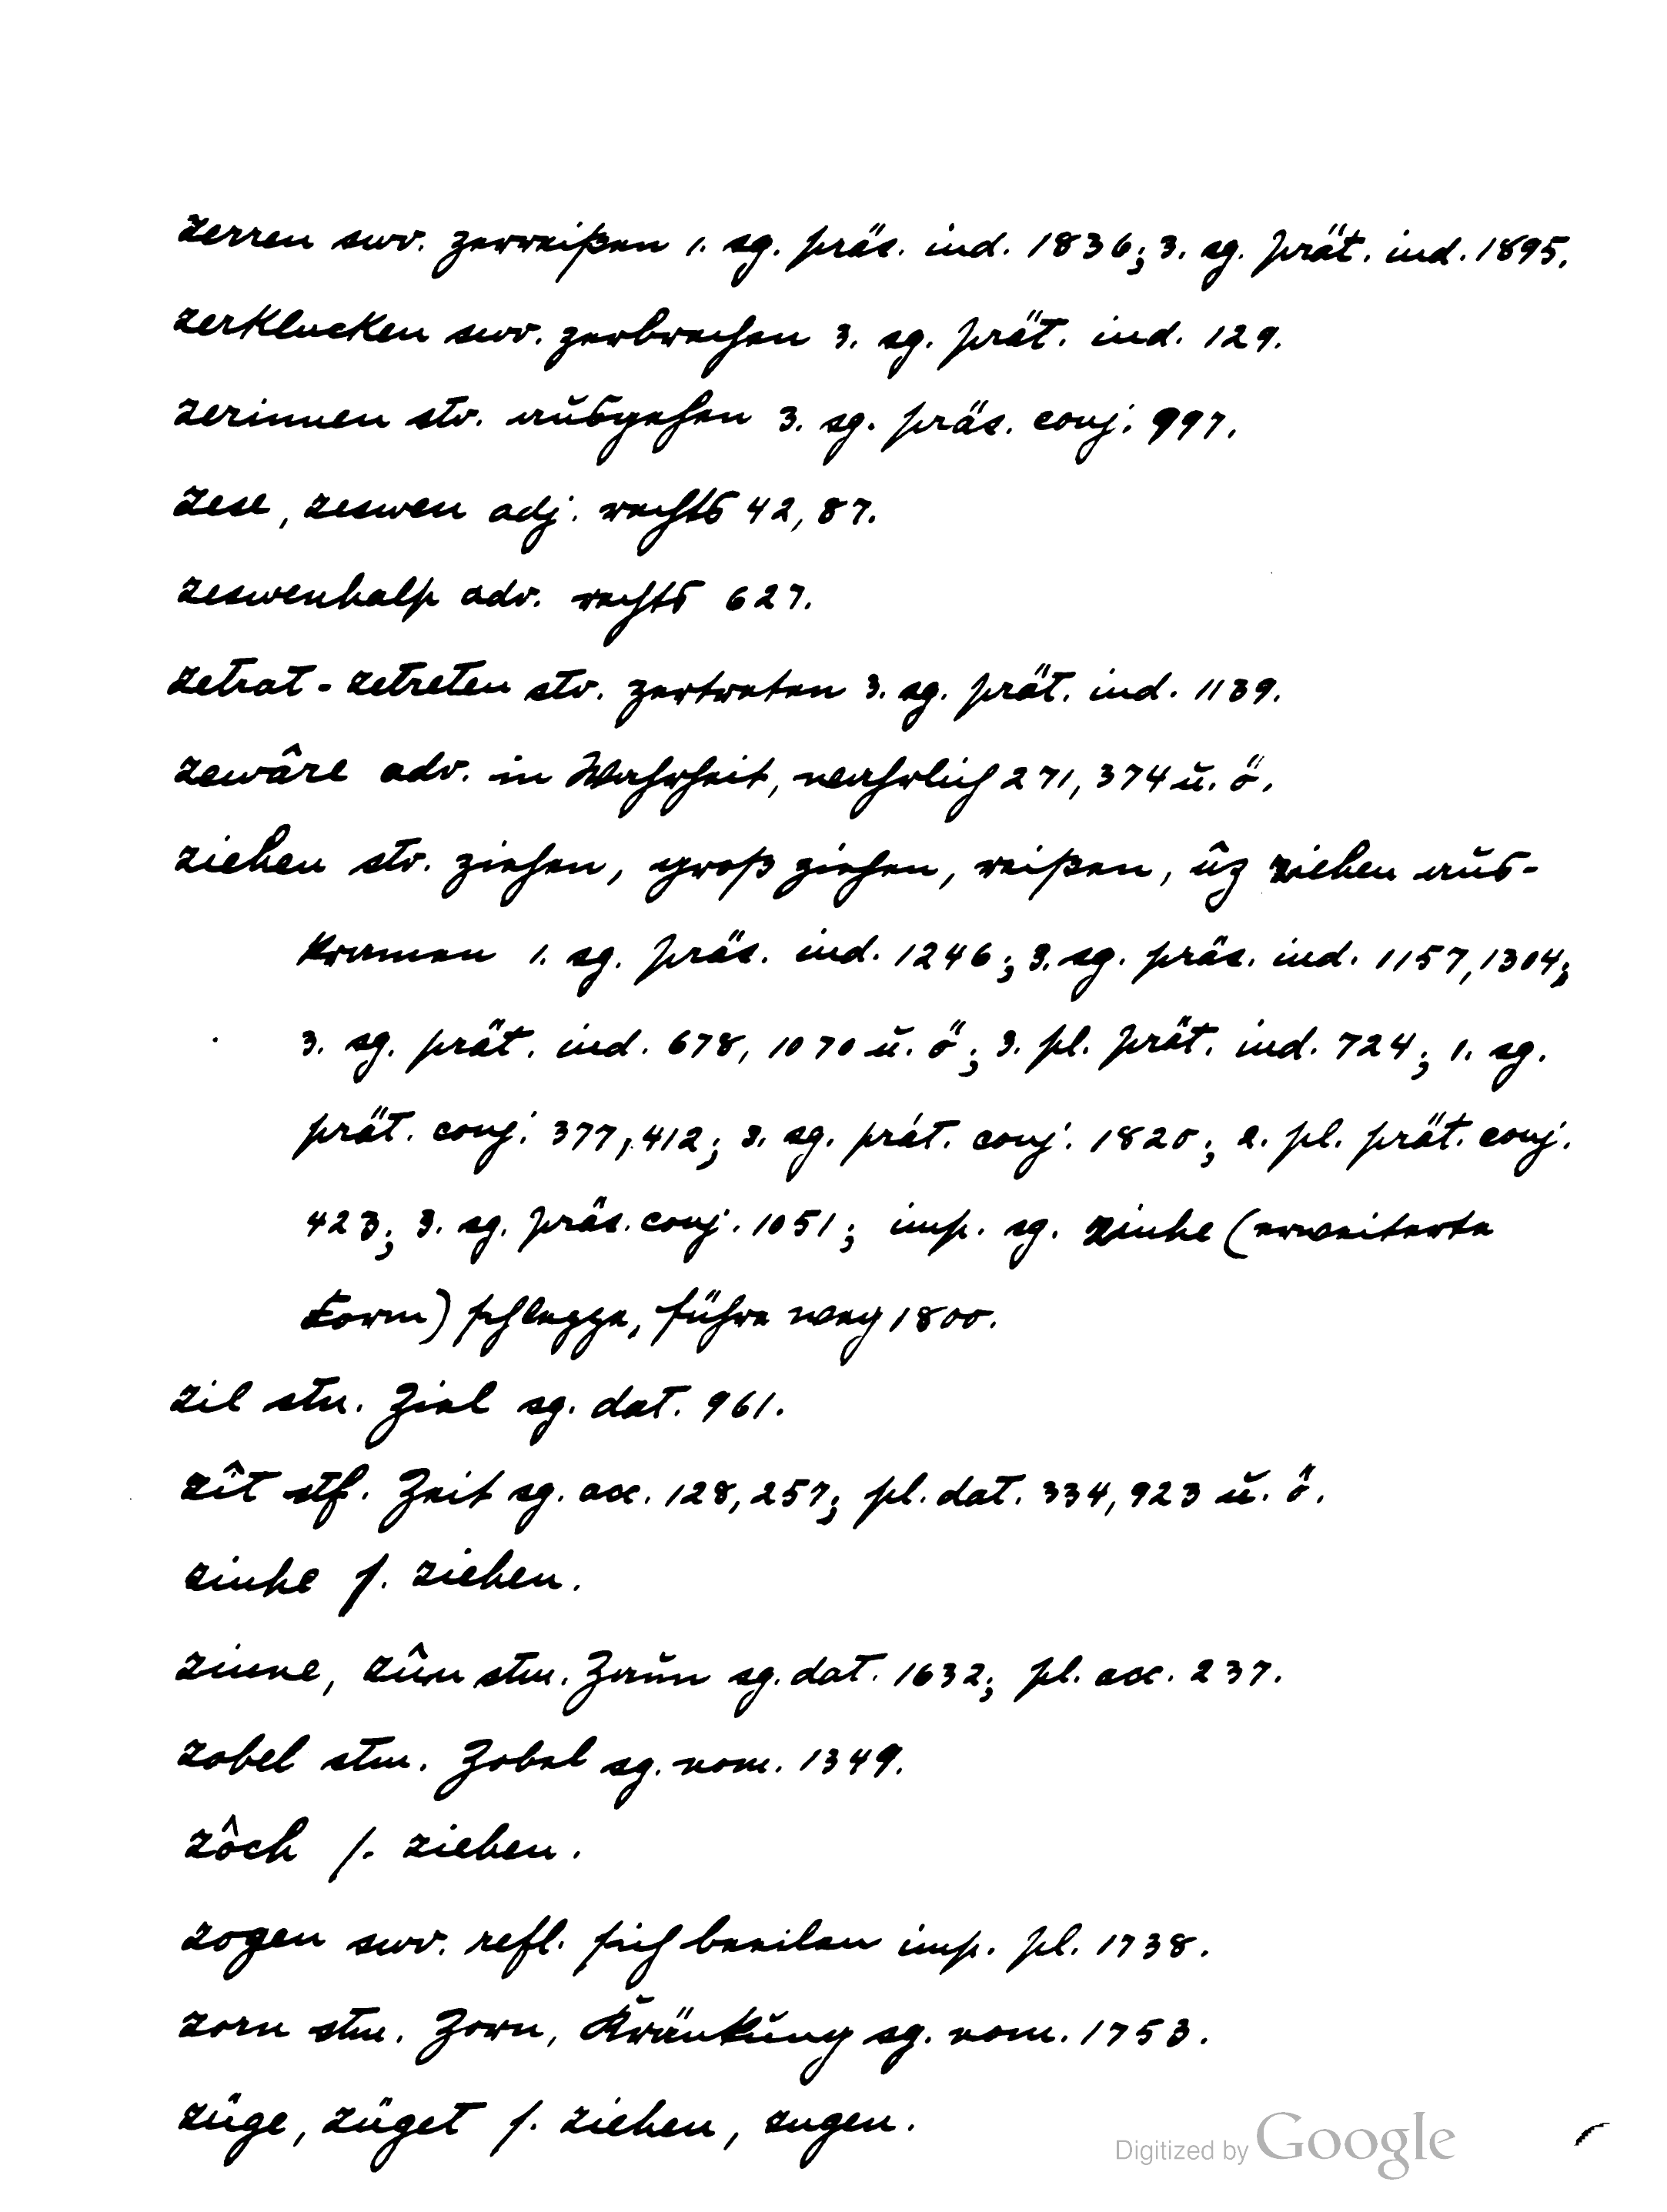 zerren swv. zerreißen 1. sg. präs. ind. 1836; 3. sg. prät. ind. 1895.
zerklucken swv. zerbrechen 3. sg. prät. ind. 129.
zerinnen stv. ausgehen 3. sg. präs. conj. 997.
zese, zeswen adj. rechts 42, 87.
zeswenhalp adv. rechts 627.
zetrat - zetreten stv. zertreten 3. sg. prät. ind. 1139.
zewâre adv. in Wahrheit, wahrlich 271, 374 u. ö.
ziehen stv. ziehen, groß ziehen, reißen, ûz ziehen aus-
kramen 1. sg. präs. ind. 1246; 3. sg. präs. ind. 1157, 1304;
3. sg. prät. ind. 678, 1070 u. ö; 3. pl. prät. ind. 724; 1. sg.
prät. conj. 377, 412; 3. sg. prät. conj. 1820; 2. pl. prät. conj.
423; 3. sg. präs. conj. 1051; imp. sg. ziuhe (erweiterte
Form) schleppe, führe weg 1800.
zil stn. Ziel sg. dat. 961.
zît stf. Zeit sg. acc. 128, 257; pl. dat. 334, 923 u. ö.
ziuhe s. ziehen.
ziune, zûn stm. Zaun sg. dat. 1632; pl. acc. 237.
zobel stm. Zobel sg. nom. 1349.
zôch s. ziehen.
zogen swv. refl. sich beeilen imp. pl. 1738.
zorn stm. Zorn, Kränkung sg. nom. 1753.
züge, züget s. ziehen, zugen.
Digitized by Google